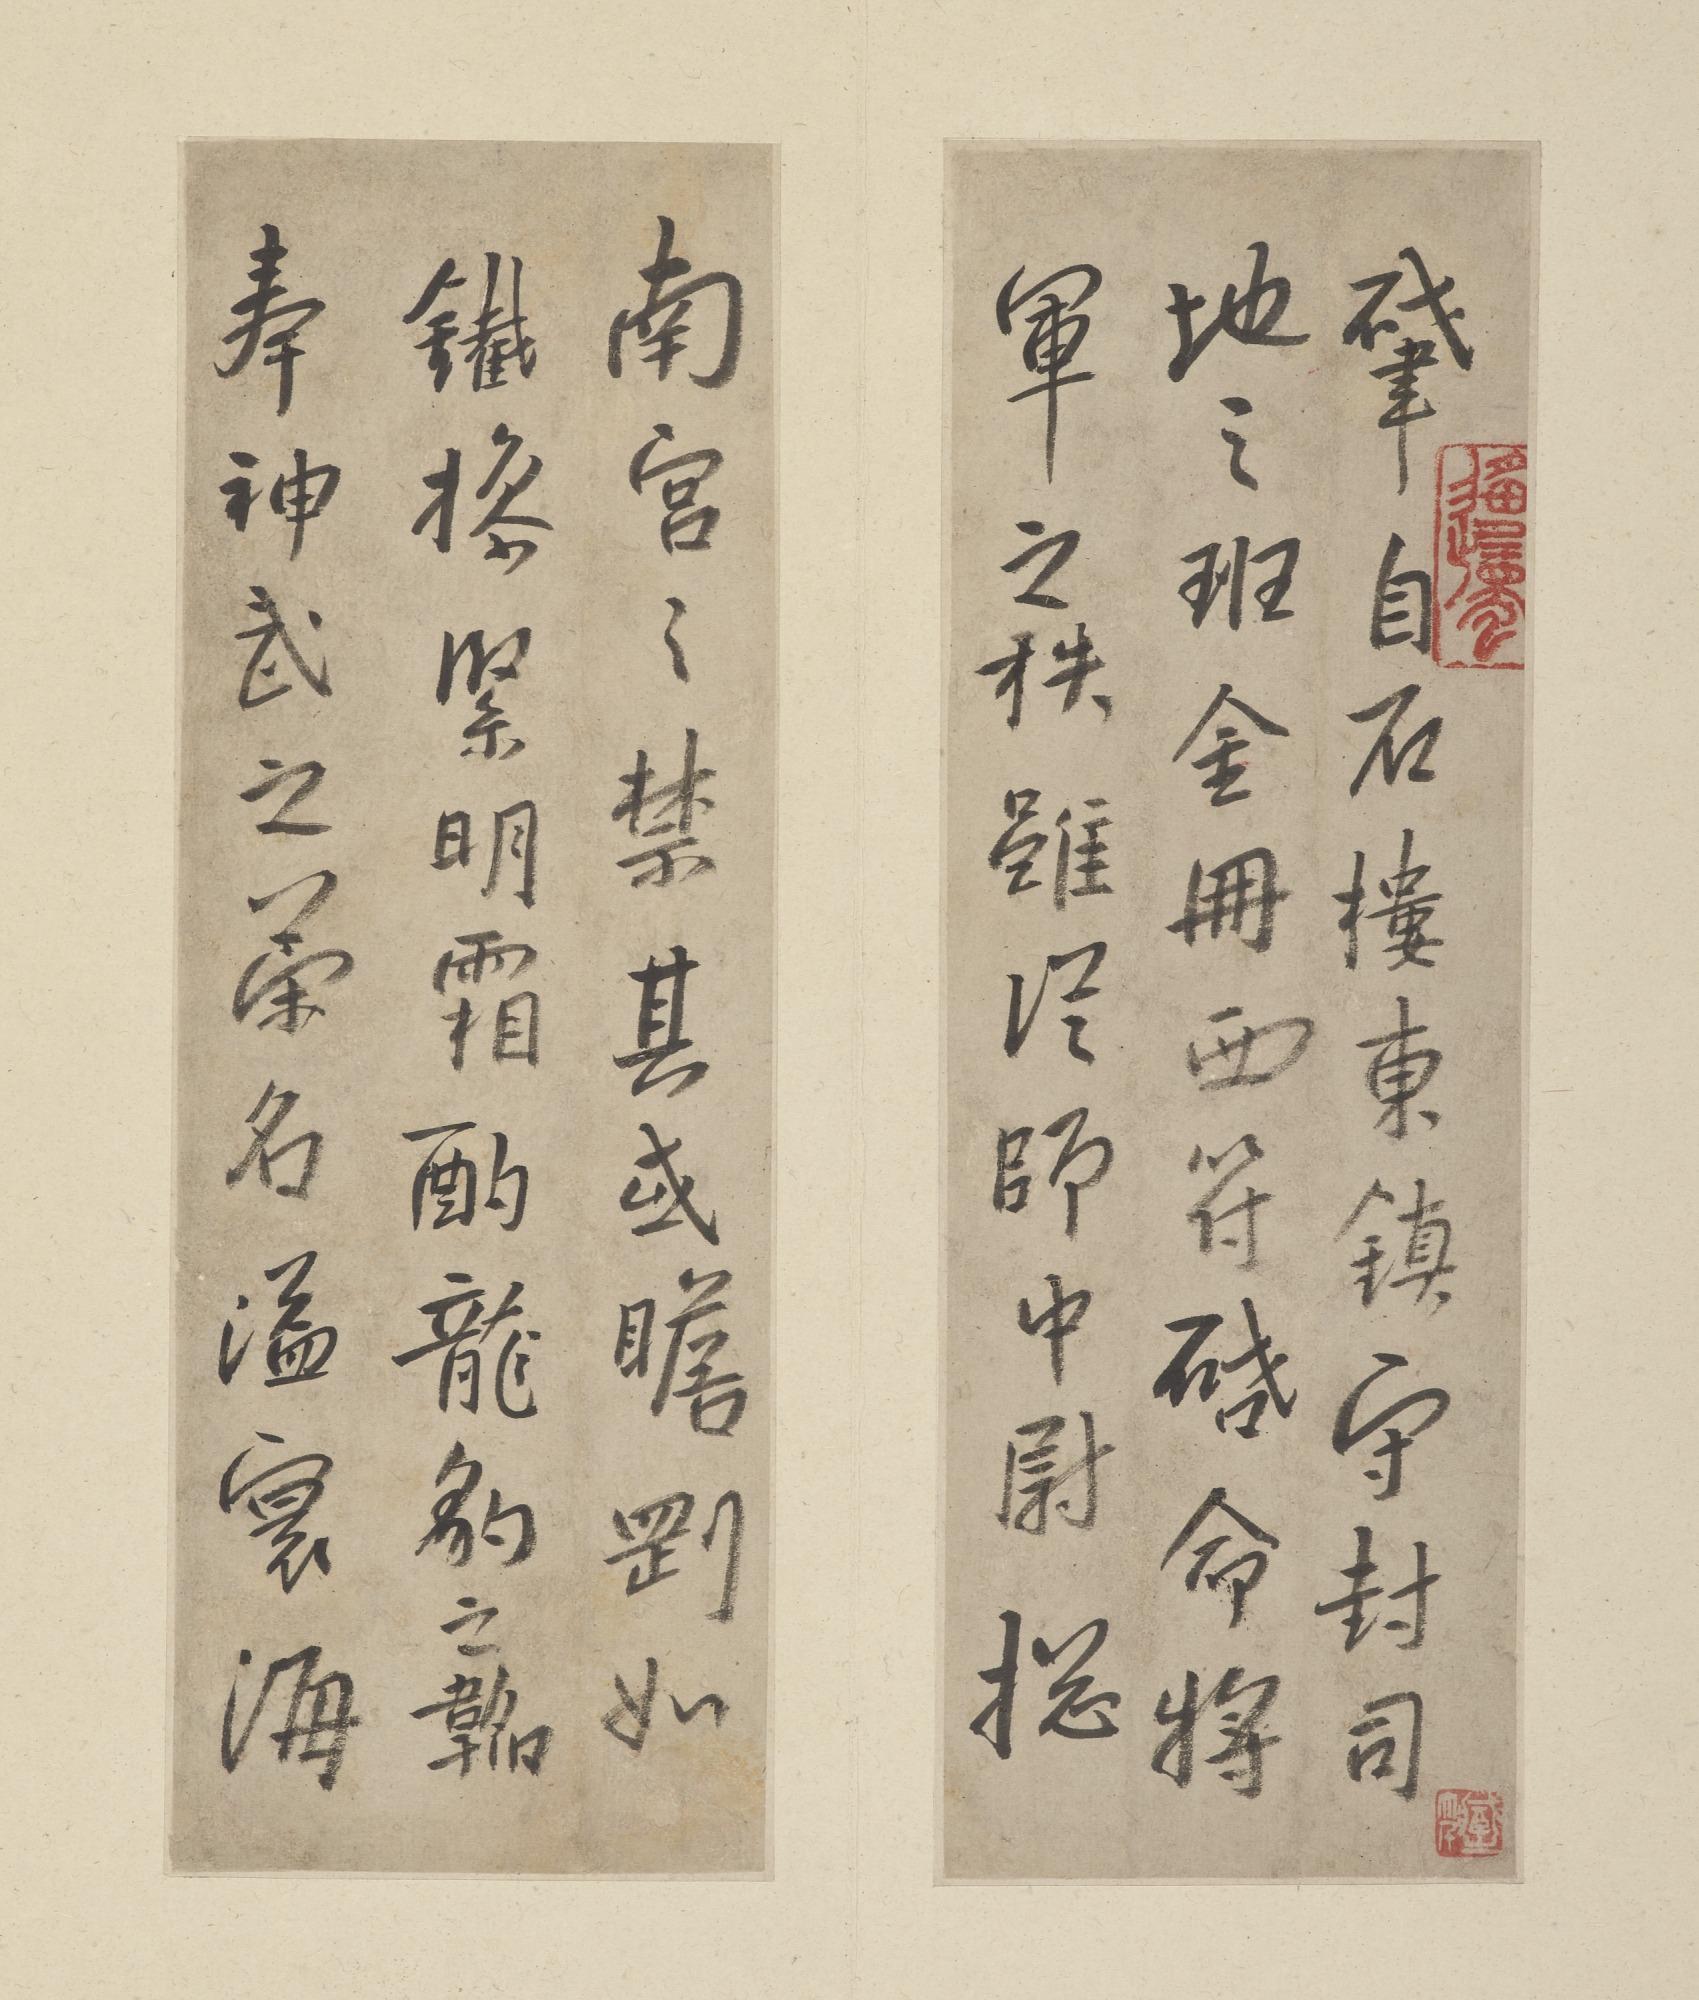 肇自石樓東鎮守封司
地之班金冊西符啓命將
軍之秩雖從師中尉揔
南宮之禁其或瞻劉如
鐵揆緊明霜酌龍豹之韜
奉神武之榮名溢寰海